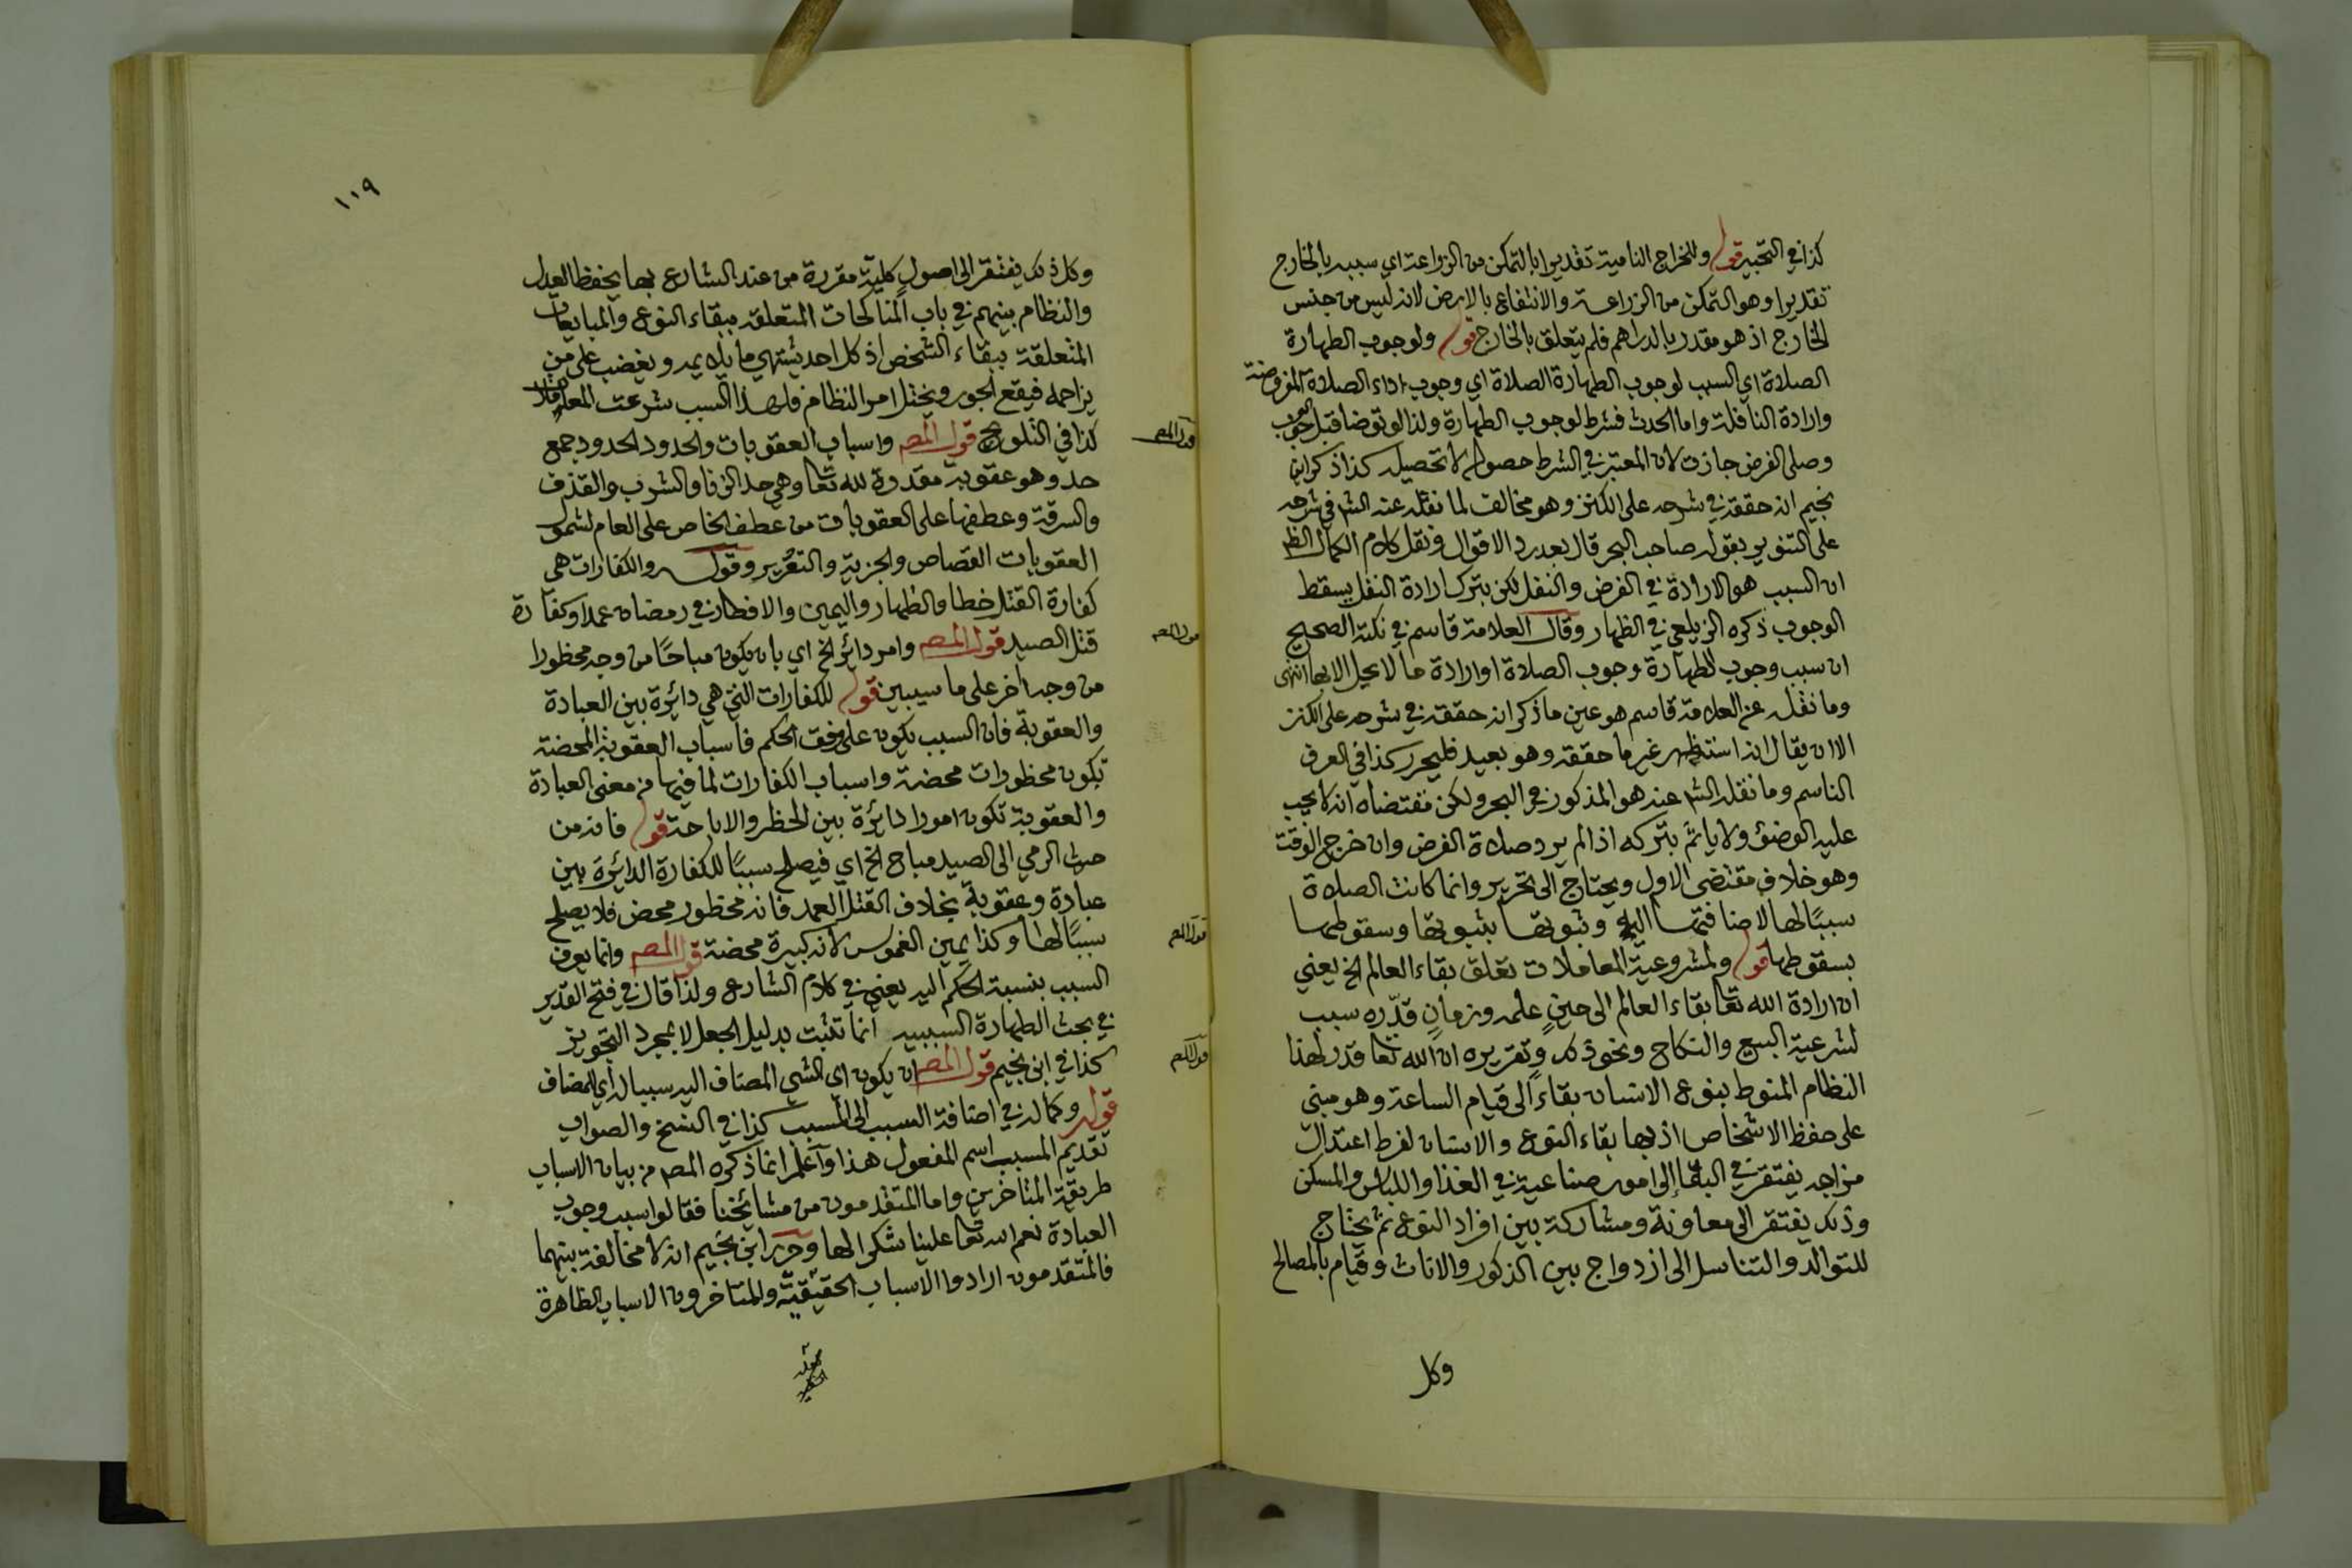 كذا في التحبير قوله وللخراج النامية تقديرا بالتمكن من الزراعة اي سببه بالخارج
تقديرا وهو التمكن من الزراعة والانتفاع بالارض لانه ليس من جنس
الخارج اذ هو مقدر بالدراهم فلم يتعلق بالخارج قوله ولوجوب الطهارة
الصلاة اي السبب لوجوب الطهارة الصلاة اي وجوب اداء الصلاة المفروضة
وارادة النافلة واما الحدث فشرط لوجوب الطهارة ولذا لو توضا قبل
وصلى الفرض جازت لان المعتبر في الشرط حصوله لا تحصيله كذا ذكر ابن
نجيم انه حققه في شرحه على الكنز وهو مخالف لما نقله عنه الشه في شرحه
على التنوير بقوله صاحب البحر قال بعد رد الاقوال ونقل كلام الكمال الظه
ان السبب هو الارادة في الفرض والنفل لكن بترك ارادة النفل يسقط
الوجوب ذكره الزيلعي في الظهار وقال العلامة قاسم في نكته الصحيح
ان سبب وجوب الطهارة وجوب الصلاة او ارادة ما لا يحل الا بها انتهى
وما نقل عن العلامة قاسم هو عين ما ذكر انه حققه في شرحه على الكنز
الا ان يقال انه استظهر غير ما حققه وهو بعيد فليحرر كذا في العرف
الناسم وما نقله الشه عنه هو المذكور في البحر ولكن مقتضاه انه لا يجب
عليه الوضوء ولا ياثم بتركه اذا لم يرد صلاة الفرض وان خرج الوقت
وهو خلاف مقتضى الاول ويحتاج الى تحرير وانما كانت الصلاة
سببًا لها لاضافتها اليها وثبوتها بثبوتها وسقوطها
بسقوطها قوله ولمشروعية المعاملات تعلق بقاء العالم الخ يعني
ان ارادة الله تعا بقاء العالم الى حينٍ علمه وزمانٍ قدّره سبب
لشرعية البيع والنكاح ونحو ذلك وتقريره ان الله تعا قدر لهذا
النظام المنوط بنوع الانسان بقاءً الى قيام الساعة وهو مبني
على حفظ الاشخاص اذ بها بقاء النوع والانسان لفرط اعتدال
مزاجه يفتقر في البقا إلى امور صناعية في الغذا واللباس والمسكن
وذلك يفتقر الى معاونة ومشاركة بين افراد النوع ثم يحتاج
للتوالد والتناسل الى ازدواج بين الذكور والاناث وقيام بالمصالح
وكل
١١٩
وكل ذلك يفتقر الى اصولٍ كليّة مقررة من عند الشارع بها يحفظ العدل
والنظام بينهم في باب المناكحات المتعلقة ببقاء النوع والمبايعات
المتعلقة ببقاء الشخص اذ كل احد يشتهي ما يلايمه ويغضب على من
يزاحمه فيقع الجور ويختل امر النظام فلهذا السبب شرعت المعاملات
كذا في التلويح قول المصه واسباب العقوبات والحدود الحدود جمع
حد وهو عقوبة مقدرة لله تعا وهي حد الزنا والشرب والقذف
والسرقة وعطفها على العقوبات من عطف الخاص على العام لشمول
العقوبات القصاص والجزية والتعزير وقوله والكفارات هي
كفارة القتل خطا والظهار واليمين والافطار في رمضان عمدا وكفارة
قتل الصيد قول المصه وامر دائر الخ اي بان يكون مباحًا من وجه محظورا
من وجه اخر على ما سيبين قوله للكفارات التي هي دائرة بين العبادة
والعقوبة فان السبب يكون على وفق الحكم فاسباب العقوبة المحضة
تكون محظورات محضة واسباب الكفارات لما فيها من معنى العبادة
والعقوبة تكون امورا دائرة بين الحظر والاباحة قوله فانه من
حيث الرمي الى الصيد مباح الخ اي فيصلح سببًا للكفارة الدائرة بين
عبادة وعقوبة بخلاف القتل العمد فانه محظور محض فلا يصلح
سببًا لها وكذا يمين الغموس لانه كبيرة محضة قول المصه وانما يعرف
السبب بنسبة الحكم اليه يعني في كلام الشارع ولذا قال في فتح القدير
في بحث الطهارة السببية انما تثبت بدليل الجعل لا بمجرد التجويز
كذا في ابن نجيم قول المصه ان يكون اي الشي المضاف اليه سببا له اي المضاف
قوله وكماله في اضافة السبب الى المسبب كذا في النسخ والصواب
تقديم المسبب اسم المفعول هذا واعلم انما ذكره المصه من بيان الاسباب
طريقة المتاخرين واما المتقدمون من مشائخنا فقالوا سبب وجوب
العبادة نعم الله تعا علينا شكرا لها وحرر ابن نجيم انه لا مخالفة بينهما
فالمتقدمون ارادوا الاسباب الحقيقيّة والمتاخرون الاسباب الظاهرة
قول المصه
قول المصه
قول المصه
قول المصه